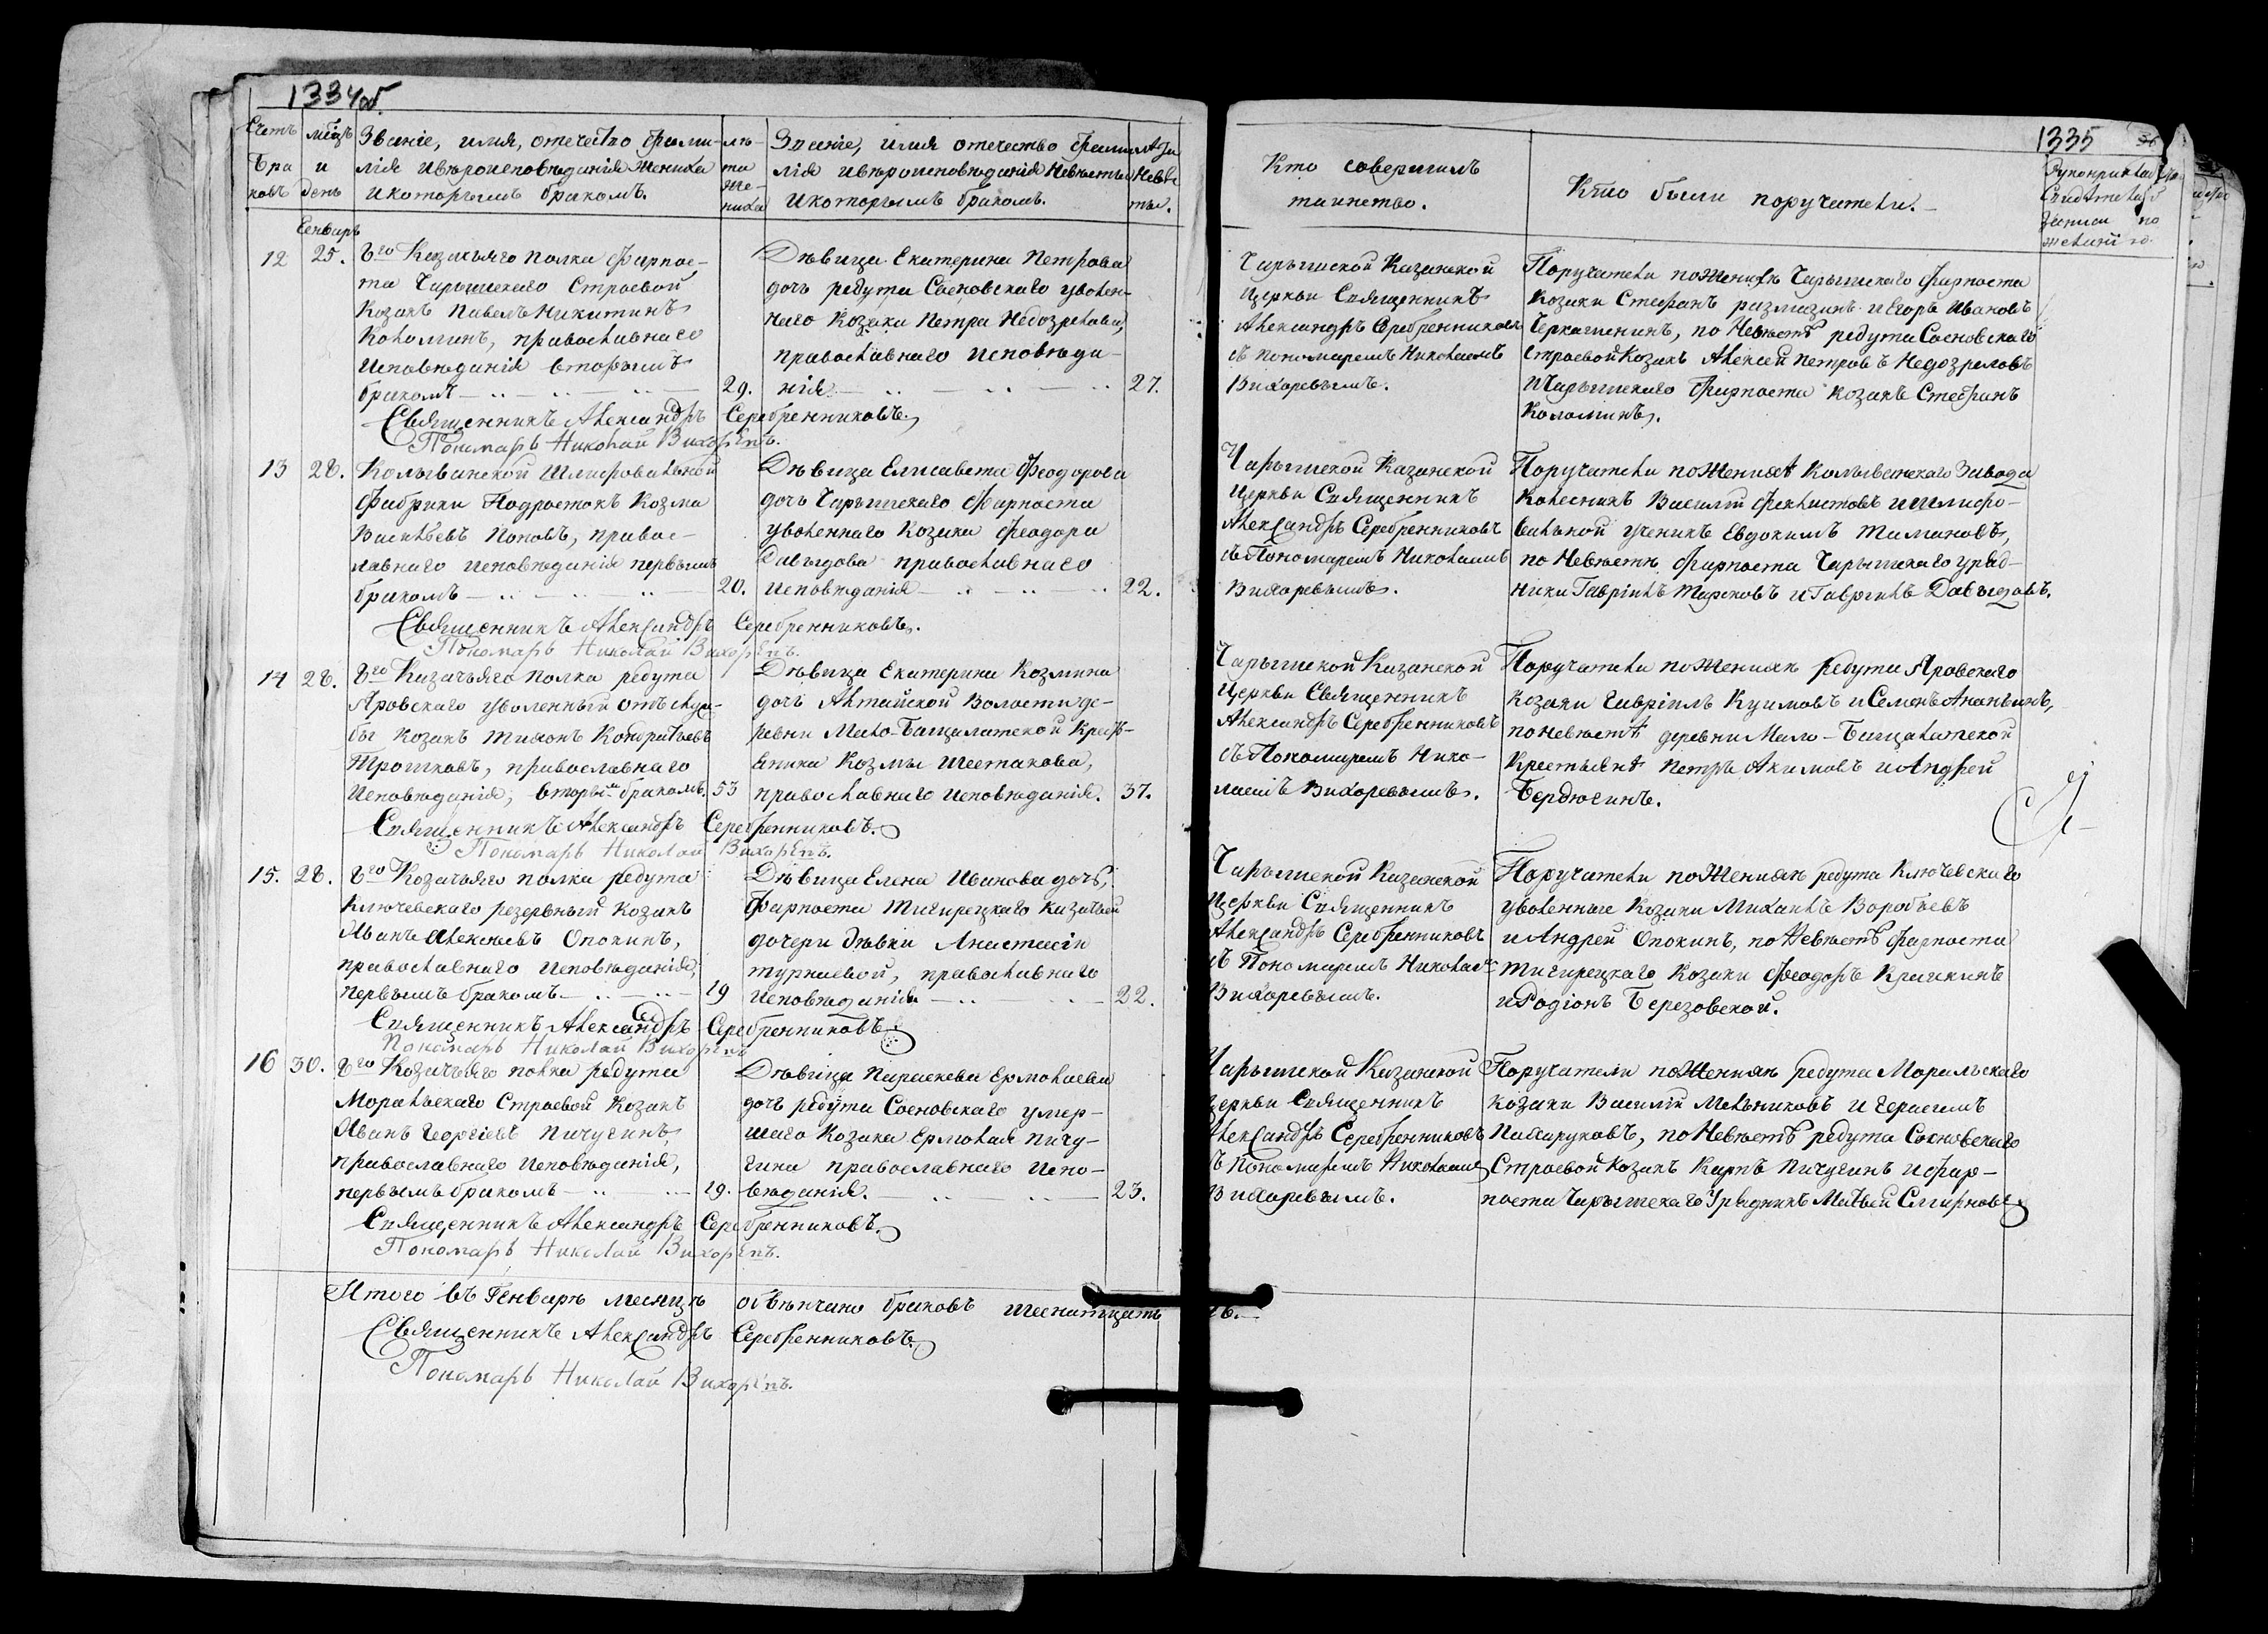 1334об.
Счетъ браковъ
мѣсяцъ и день
Званіе, имя, отечество фами-
лія и вѣроисповѣданія Жениха
и которымъ бракомъ.
лѣ-
та
же-
ниха
Званіе, имя отечество фами
лія и вѣроисповѣданія Невѣсты
и которымъ бракомъ.
лѣта
Невѣс
ты.
Генварь
12
25.
8го Казачьяго полка форпос-
та Чарышскаго Строевой
Козакъ Павелъ Никитинъ
Коломинъ, православнаго
исповѣданія вторымъ
бракомъ
29.
Дѣвица Екатерина Петрова
дочь редута Сосновскаго уволен-
наго Козака Петра Недозрелова,
православнаго исповѣда-
нія
27.
Священникъ Александръ Серебренниковъ.
Пономарь Николай Вихоревъ.
13
28.
Колыванской Шлифовальной
Фабрики Подростокъ Козма
Васильевъ Поповъ, правос-
лавнаго исповѣданія первымъ
бракомъ
20.
Дѣвица Елисавета Феодорова
дочь Чарышскаго Форпоста
уволеннаго Козака Феодора
Давыдова православнаго
исповѣданія
22.
Священникъ Александръ Серебренниковъ.
Пономарь Николай Вихоревъ.
14
28.
8го Казачьяго полка редута
Яровскаго уволенный отъ служ-
бы Козакъ Тихонъ Кондратьевъ
Трошковъ, православнаго
исповѣданія, вторымъ бракомъ.
53
Дѣвица Екатерина Козмина
дочь Алтайской Волости де-
ревни Мало-Бащалатской Крестья-
нина Козмы Шестакова,
православнаго исповѣданія.
37.
Священникъ Александръ Серебренниковъ.
Пономарь Николай Вихоревъ.
15.
28.
8го Козачьяго полка редута
Ключевскаго резервный Козакъ
Иванъ Алексѣевъ Опокинъ,
православнаго исповѣданія,
первымъ бракомъ
19
Дѣвица Елена Иванова дочь,
форпоста Тигирецкаго казачьей
дочери дѣвки Анастасіи
православнаго
исповѣданія
22.
Священникъ Александръ Серебренниковъ
Пономарь Николай Вихоревъ
16
30.
8го Козачьяго полка редута
Моральскаго Строевой Козакъ
Иванъ Георгіевъ Пичугинъ,
православнаго исповѣданія,
первымъ бракомъ
19.
Дѣвица Параскева Ермолаева
дочь редута Сосновскаго умер-
шаго Козака Ермолая Пичу-
гина православнаго испо-
вѣданія.
23.
Священникъ Александръ Серебренниковъ.
Пономарь Николай Вихоревъ.
Итого въ Генварѣ месяцѣ обвѣнчано браковъ шеснатцать 16.
Священникъ Александръ Серебренниковъ.
Пономарь Николай Вихоревъ.
1335
Кто совершилъ
таинство.
Кто были поручители.
Чарышской Казанской
Церкви Священникъ
Александръ Серебренниковъ
съ пономаремъ Николаемъ
Вихоревымъ.
Поручители по Женихѣ Чарышскаго форпоста
Козаки Стефанъ и Егоръ Ивановъ
по Невѣстѣ редута Сосновскаго
Строевой Козакъ Алексей Петровъ Недозреловъ
и Чарышскаго форпоста козакъ Стефанъ
Коломинъ.
Чарышской Казанской
Церкви Священникъ
Александръ Серебренниковъ
съ Пономаремъ Николаемъ
Вихоревымъ.
Поручители по Женихѣ Колыванскаго Завода
Колесникъ Василій Феклистовъ и Шлифо-
вальной ученикъ Евдокимъ
по Невѣстѣ форпоста Чарышскаго уряд-
ники Гавріилъ и Гавріилъ Давыдовъ.
Чарышской Казанской
Церкви Священникъ
Александръ Серебренниковъ
съ Пономаремъ Нико-
лаемъ Вихоревымъ.
Поручители по Женихѣ редута Яровскаго
козаки Гавріилъ Куимовъ и Семенъ Ананьинъ,
по невѣстѣ деревни Мало-Бащалатской
Крестьяне Петръ Акимовъ и Андрей
Бердюгинъ.
Чарышской Казанской
Церкви Священникъ
Александръ Серебренниковъ
съ Пономаремъ Николаемъ
Вихоревымъ.
Поручители по Женихѣ редута Ключевскаго
уволенные Козаки Михаилъ Воробьевъ
и Андрей Опокинъ, по Невѣстѣ форпоста
Тигирецкаго Козаки Феодоръ
и Родіонъ Березовской.
Чарышской Казанской
Церкви Священникъ
Александръ Серебренниковъ
съ Пономаремъ Николаемъ
Вихоревымъ.
Поручители по Женихѣ редута Моральскаго
козаки Василій Мельниковъ и Герасимъ
по Невѣстѣ редута Сосновскаго
Строевой Козакъ Карпъ Пичугинъ и фор-
поста Чарышскаго Урядникъ Матвей Смирновъ